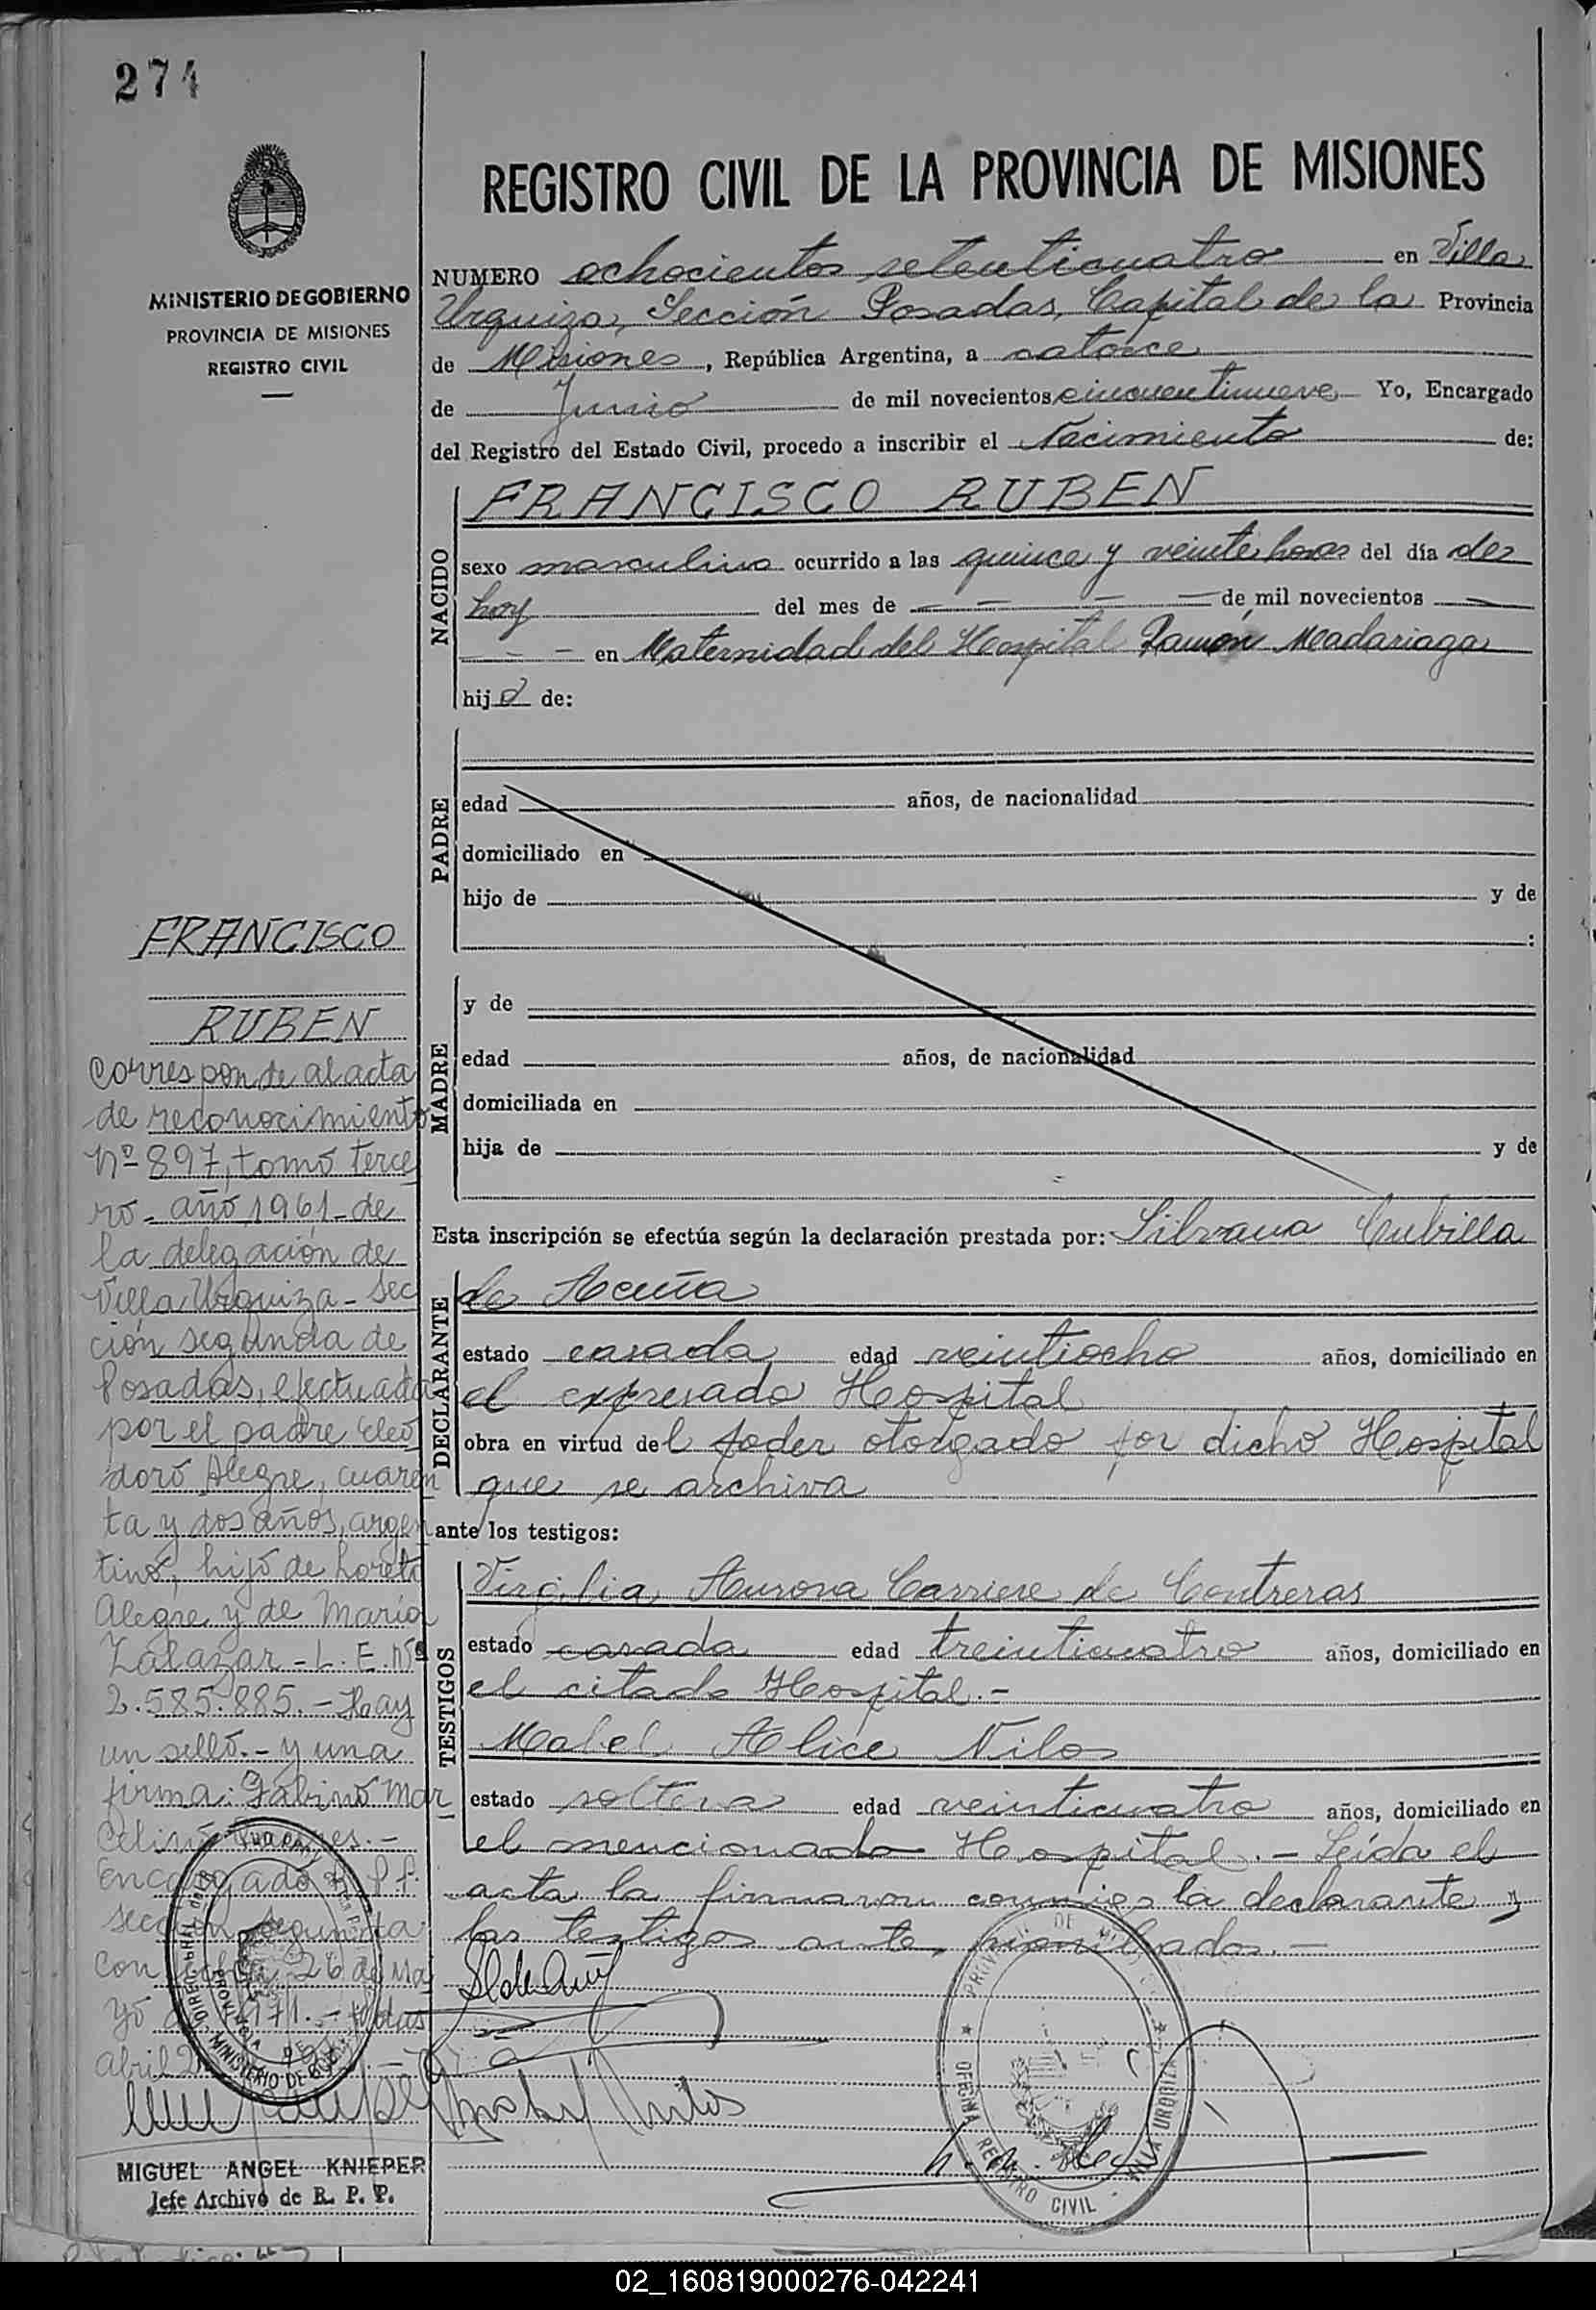 274
MINISTERIO DE GOBIERNO
PROVINCIA DE MISIONES
REGISTRO CIVIL
REGISTRO CIVIL DE LA PROVINCIA DE MISIONES
NUMERO ochocientos setenticuatro en Villa
Urquiza, Sección Posadas, Capital de la Provincia
de Misiones, República Argentina, a catorce
de Junio de mil novecientos cincuentinueve Yo, Encargado
del Registro del Estado Civil, procedo a inscribir el Nacimiento de:
NACIDO
FRANCISCO RUBEN
sexo masculino ocurrido a las quince y veinte horas del día de
hoy del mes de — — — — de mil novecientos —
- - - en Maternidad del Hospital Ramón Madariaga
hijo de:
PADRE
edad años, de nacionalidad
domiciliado en
hijo de y de
:
MADRE
y de
edad años, de nacionalidad
domiciliada en
hija de y de
Esta inscripción se efectúa según la declaración prestada por: Silvana Cubilla
DECLARANTE
de Acuña
estado casada edad veintiocho años, domiciliado en
el expresado Hospital
obra en virtud del poder otorgado por dicho Hospital
que se archiva
ante los testigos:
TESTIGOS
Virgilia Aurora Carriere de Contreras
estado casada edad treinticuatro años, domiciliado en
el citado Hospital.-
Mabel Alice Nilos
estado soltera edad veinticuatro años, domiciliado en
el mencionado Hospital.- Leída el
acta la firmaron conmigo la declarante y
las testigos ante
FRANCISCO
RUBEN
Corresponde al acta
de reconocimiento
Nº 897, tomo terce
ro - año 1961 - de
la delegación de
Villa Urquiza - Sec
ción segunda de
Posadas, efectuada
por el padre Eleo
doro Alegre, cuaren
ta y dos años, argen
tino, hijo de Loreto
Alegre y de María
Zalazar - L. E. Nº
2.585.885.- Hay
un sello.- y una
firma: Gabino Mar
celino
Encargado
sección segunda
con 26 de Ma
yo
Abril
MIGUEL ANGEL KNIEPER
Jefe Archivo de R. P. P.
OFICINA REGISTRO CIVIL - VILLA URQUIZA
02_160819000276-042241